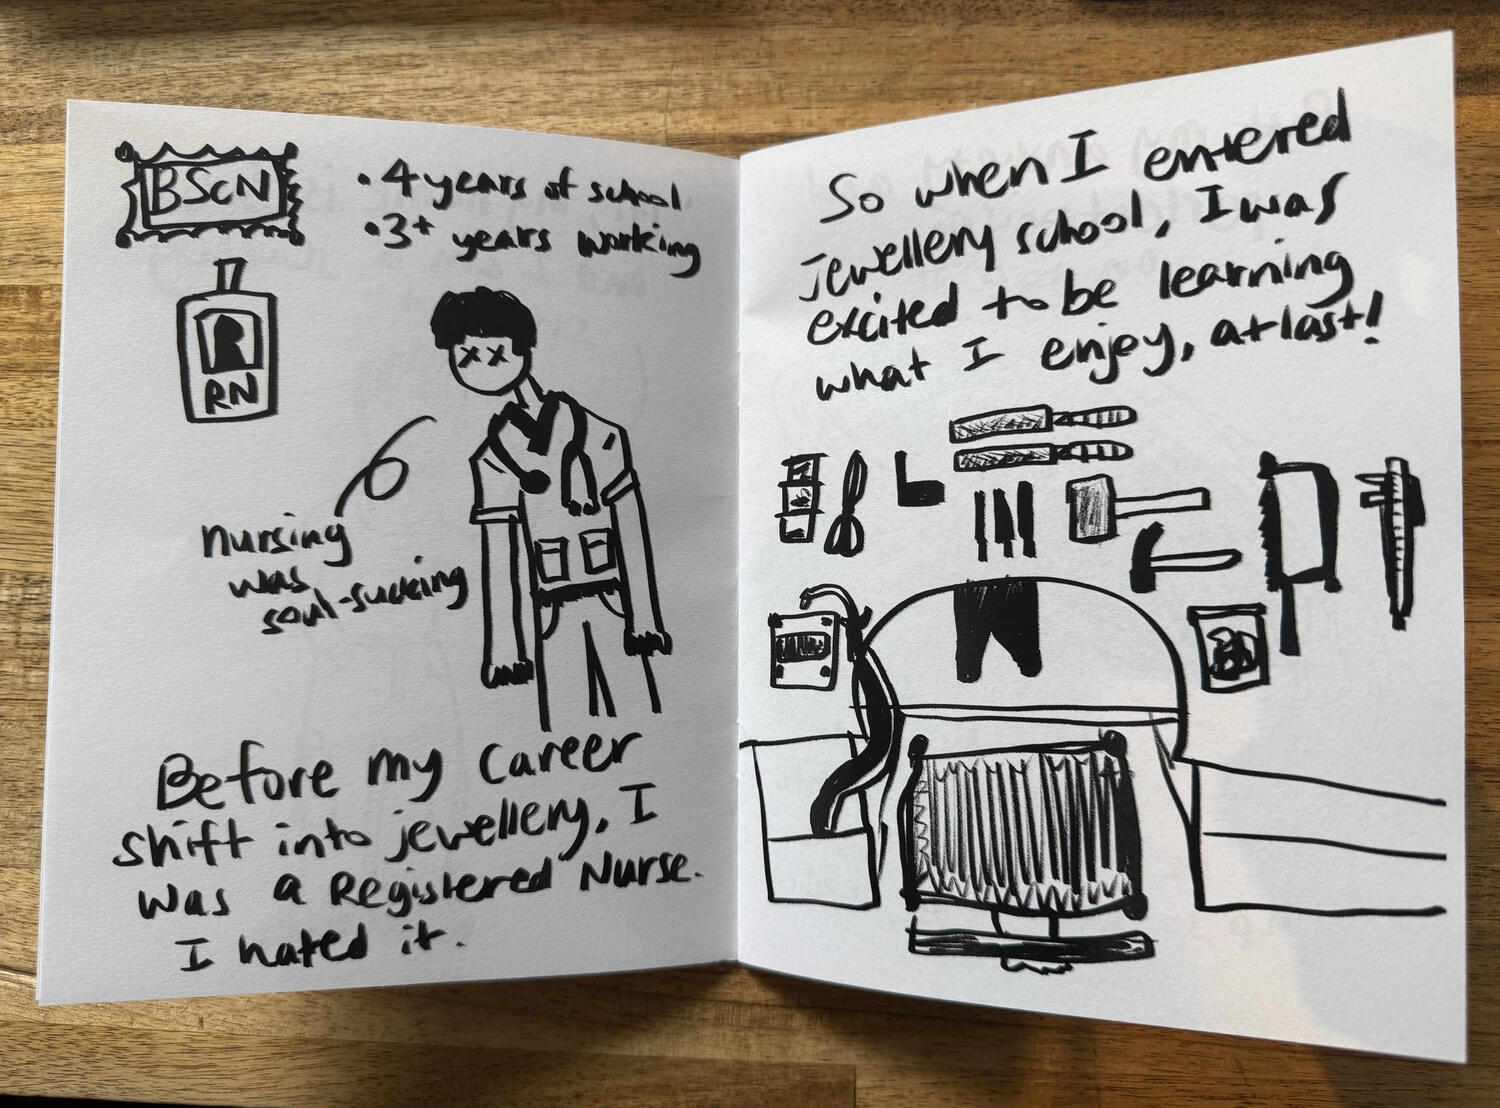 BScN
• 4 years of school
• 3+ years working
RN
nursing
was
soul-sucking
Before my career
shift into jewellery, I
was a Registered Nurse.
I hated it.
So when I entered
jewellery school, I was
excited to be learning
what I enjoy, at last!